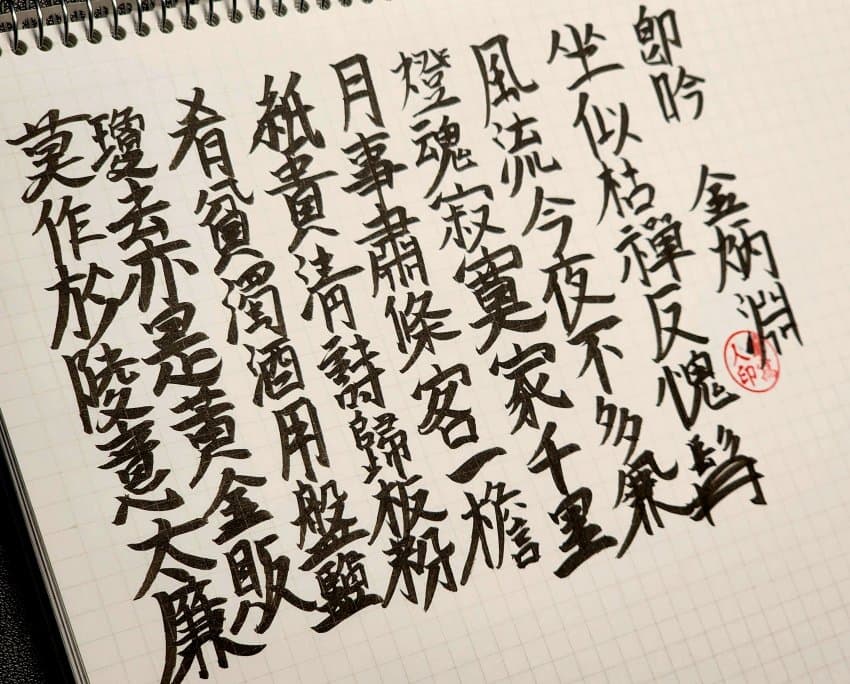 卽吟 金炳淵
坐似枯禪反愧髥
風流今夜不多兼
燈魂寂寞家千里
月事肅條客一檐
紙貴淸詩歸板粉
肴貧濁酒用盤鹽
瓊去亦是黃金販
莫作於陵意太廉
人印